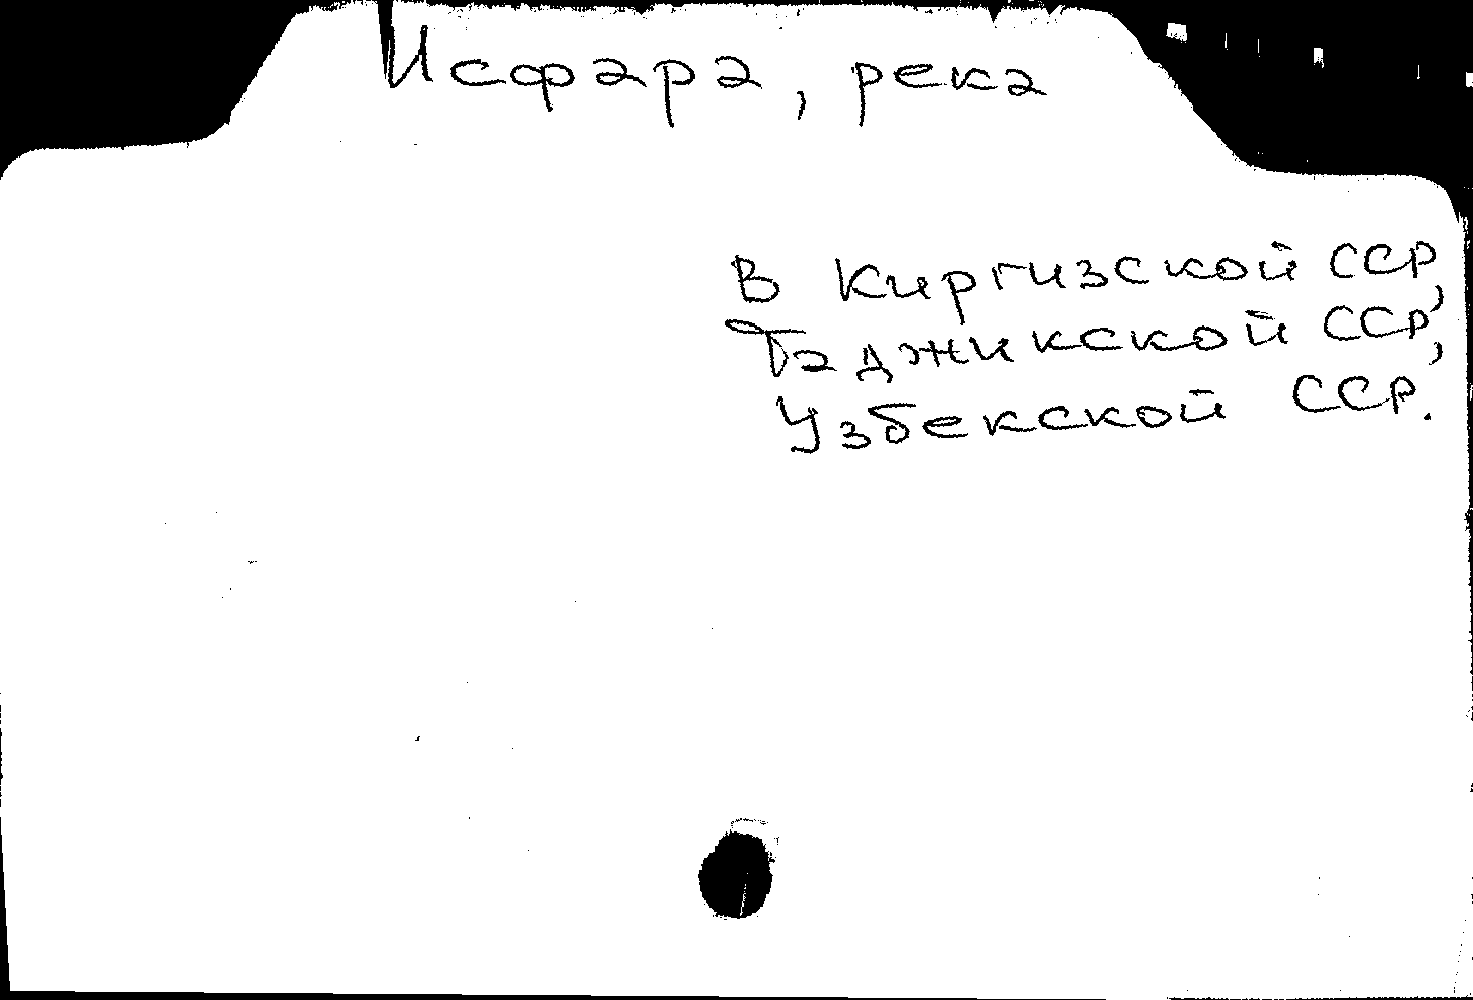 Исфара, река
в Киргизской ССР,
Таджикской ССР,
Узбекской ССР.